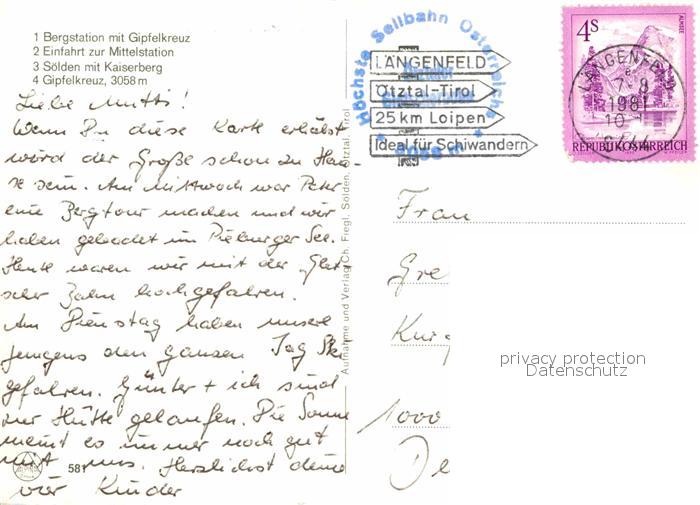 1 Bergstation mit Gipfelkreuz
2 Einfahrt zur Mittelstation
3 Sölden mit Kaiserberg
4 Gipfelkreuz, 3058 m
Liebe Mutti!
Wenn Du diese Karte erhälst
wird der Große schon zu Hau-
se sein. Am Mittwoch war Peter
eine Bergtour machen und wir
haben gebadet im Piburger See.
Heute waren wir mit der Glet-
scher Bahn hochgefahren.
Am Dienstag haben unsere
Jungens den ganzen Tag Ski
gefahren. Günter + ich sind
zur Hütte gelaufen. Die Sonne
meint es immer noch gut
mit uns. Herzlichst deine
vier Kinder
581
Aufnahme und Verlag Ch. Fiegl, Sölden, Ötztal, Tirol
Höchste Seilbahn Österreichs
3058 m
LÄNGENFELD
Ötztal-Tirol
25 km Loipen
Ideal für Schiwandern
4 S
ALMSEE
LÄNGENFELD
1981
6444
REPUBLIK ÖSTERREICH
Frau
Gre
1000
De
privacy protection
Datenschutz